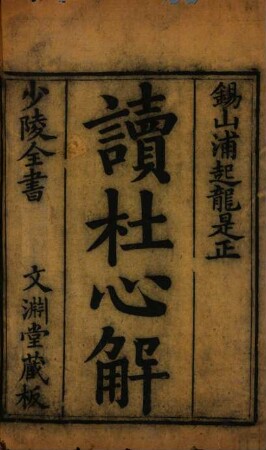 錫山浦起龍是正
讀杜心解
少陵全書
文淵堂藏板